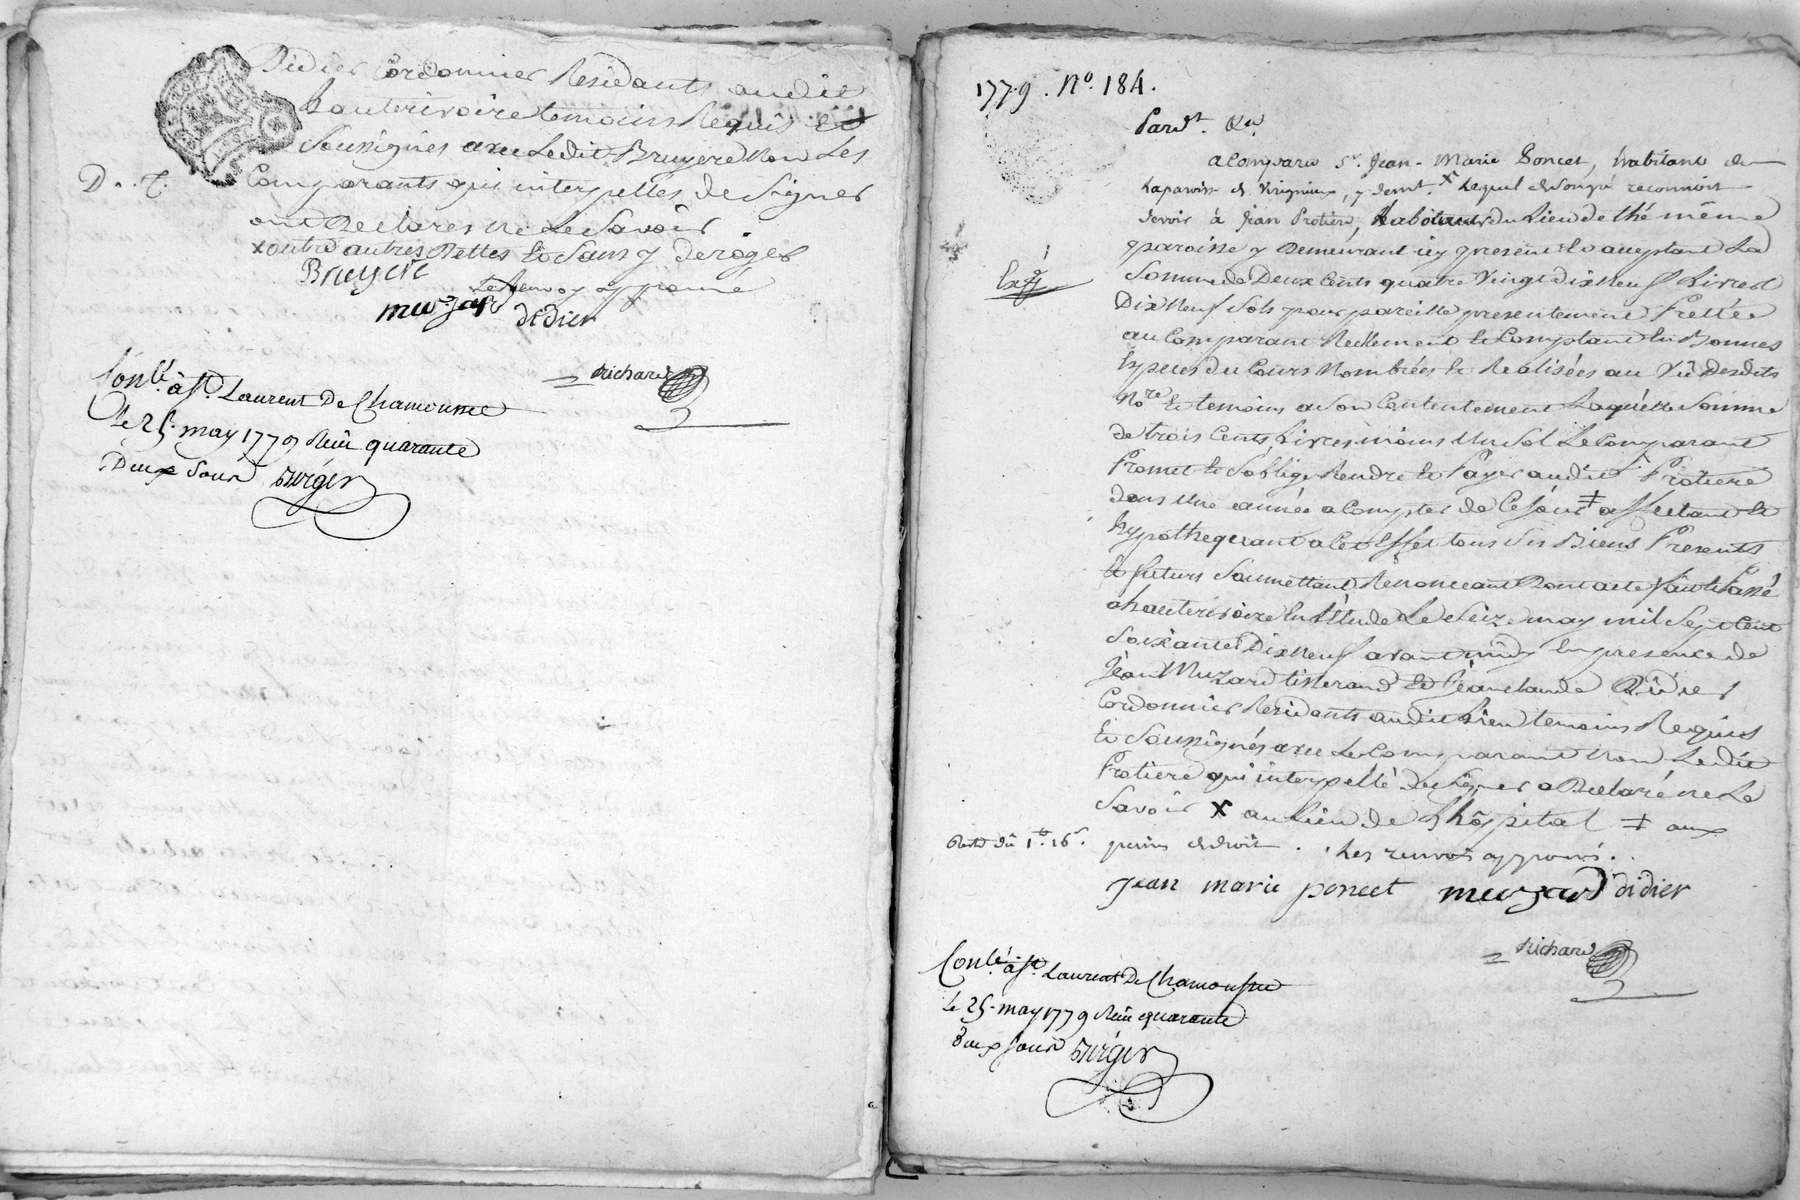 Didier Cordonnier Residants audit
hauterivoire temoins Requis Et
Soussignés avec Ledit Bruyere Non Les
D. T.
Comparants qui interpelles de Signer
ont Declarés ne Le Savoir
x outre autres Dettes Et Sans y deroger
Bruyere
Le Renvoy approuvé
muzard didier
Richard
Conlé à St. Laurent De Chamousset
Le 25. may 1779 Reçu quarante
Deux Sous
1779. No. 184.
Pardt. &a.
a Comparu Sr. Jean-Marie Poncet, habitant de
La paroisse de Virigneux, y demt. x Lequel de Son gré reconnoit
devoir à Jean Protiere, Laboureur du Lieu de thé même
paroisse y Demeurant icy present Et acceptant La
Somme de Deux Cents quatre Vingt dix Neuf Livres
Dix Neuf Sols pour pareille presentement Prettée
au Comparant Réellement Et Comptant En Bonnes
Especes du Cours Nombrées Et Realisées au Vû Desdits
Nore Et temoins a Son Contentement Laquelle Somme
de trois Cents Livres moins Un Sol Le Comparant
Promet Et S'oblige Rendre Et Payer audit Protiere
dans Une année a Compter de Ce Jour ‡ affectant Et
hypothequant a Cet Effet tous Ses Biens Presents
Et futurs Soumettant Renonceant Dont acte fait Et Passé
a hauterivoire En L'Etude Le Seize may mil Sept Cent
Soixante Dix Neuf avant midy En presence de
Jean Muzard tisserand Et Jean Claude Didier
Cordonnier Residants audit Lieu temoins Requis
Et Soussignés avec Le Comparant Non Ledit
Protiere qui interpellé de Signer a Declaré ne Le
Savoir x au Lieu de L'hôpital ‡ aux
Reste dû 1tt. 16s.
peines de droit. Les renvois approuvés.
Jean marie poncet muzard didier
Richard
Conlé à St. Laurent De Chamousset
Le 25. may 1779 Reçu quarante
Deux Sous